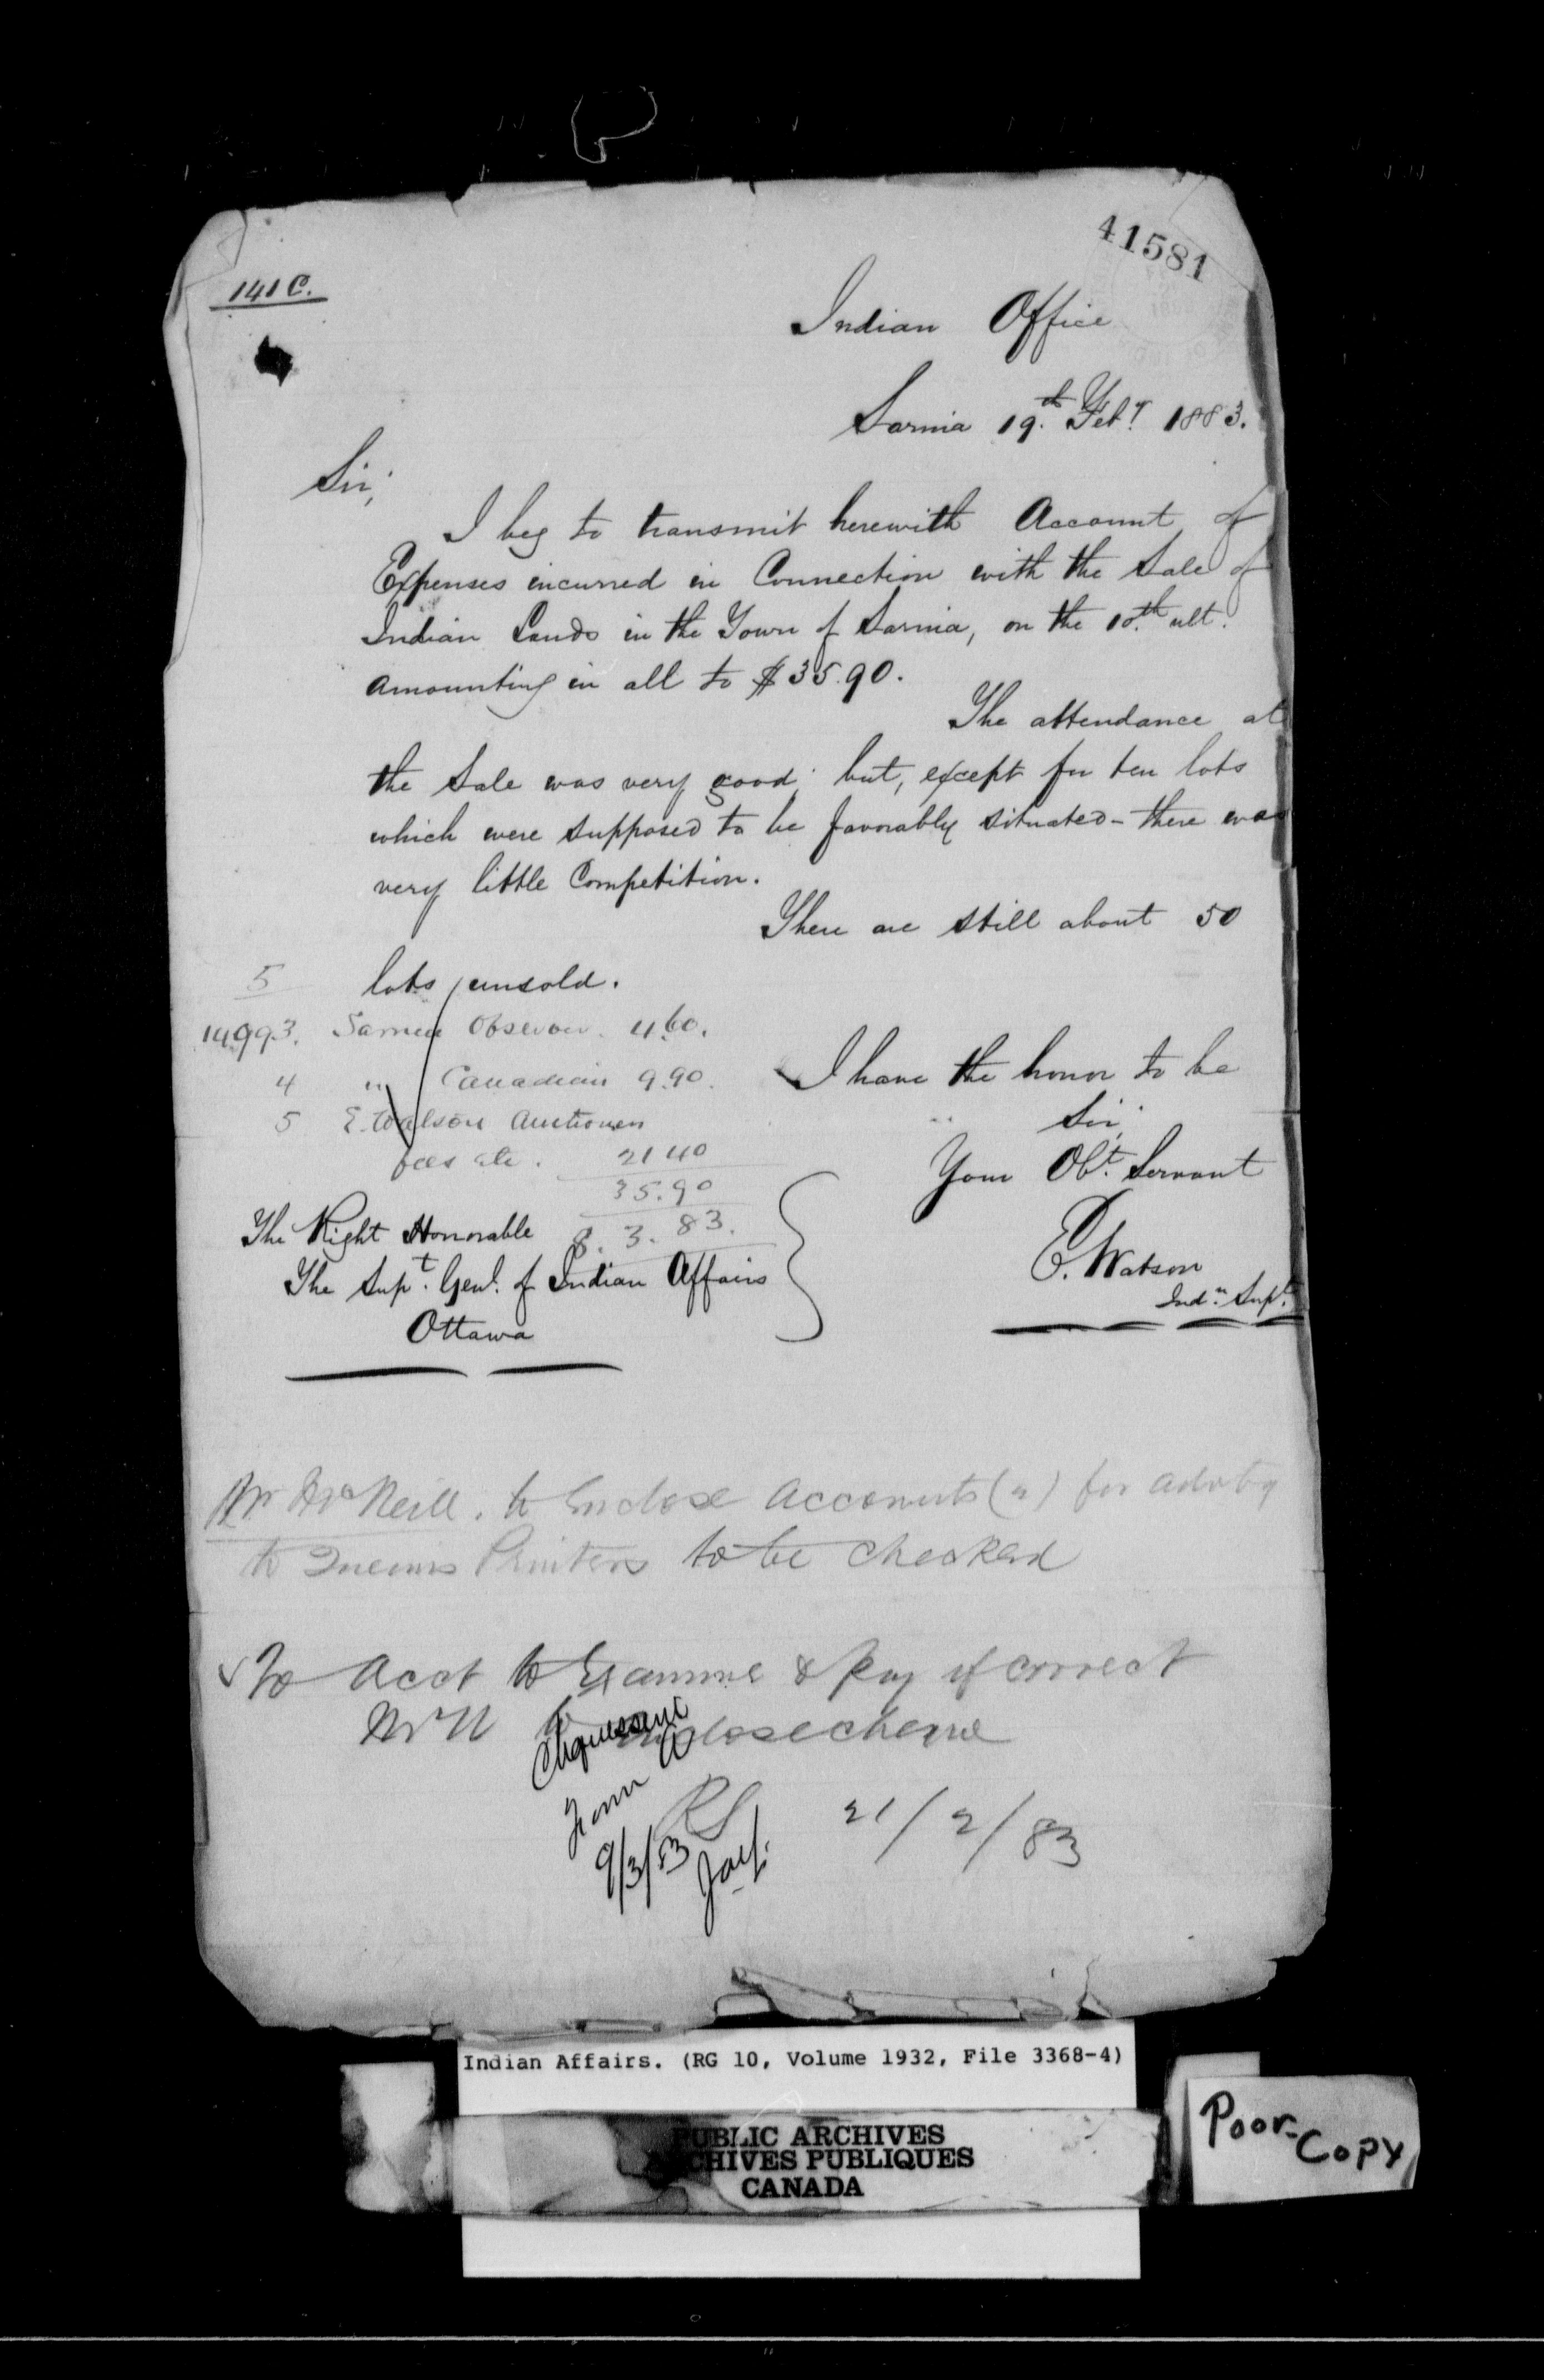 41581
141 C.
Indian Office
Sarnia 19th Feby 1883.
Sir,
I beg to transmit herewith Account of
Expenses incurred in Connection with the Sale of
Indian Lands in the Town of Sarnia, on the 10th ult.
amounting in all to $35.90.
The attendance at
the Sale was very good; but, except for ten lots
which were supposed to be favorably situated - there was
very little Competition.
There are still about 50
lots unsold.
5
14993. Sarnia Observer. 4.60.
4 " Canadian 9.90.
5 E. Watson Auctioneer
fees etc. 21 40
35.90
8. 3. 83.
I have the honor to be
Sir,
Your Obt. Servant
E. Watson
Indn. Supt.
The Right Honorable
The Supt. Genl. of Indian Affairs
Ottawa
Mr McNeill. to Enclose Accounts (2) for advtg
to Queens Printers to be checked
To Acct to Examine & Pay if correct
Mr N to enclose cheque
Cheques sent
9/3/83
RS 21/2/83
Indian Affairs. (RG 10, Volume 1932, File 3368-4)
PUBLIC ARCHIVES
ARCHIVES PUBLIQUES
CANADA
Poor-
Copy